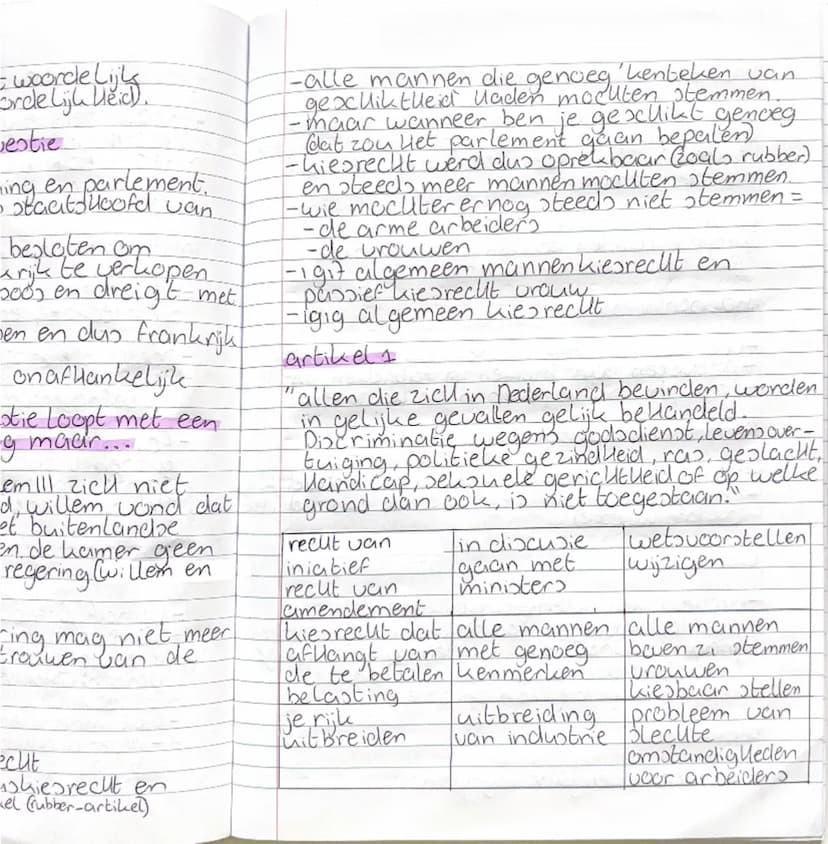 woordelijk
ordelijkheid).
estie
ning en parlement.
staatshoofd van
besloten om
krijk te verkopen
boos en dreigt met
en en dus frankrijk
onafhankelijk
tie loopt met een
g maar...
em III zich niet
d, willem vond dat
et buitenlandse
en de kamer geen
regering (willem en
ring mag niet meer
trouwen van de
echt
skiesrecht en
kel (rubber-artikel)
-alle mannen die genoeg 'kenteken van
geschiktheid' hadden mochten stemmen.
-maar wanneer ben je geschikt genoeg
(dat zou het parlement gaan bepalen)
-kiesrecht werd dus oprekbaar (zoals rubber)
en steeds meer mannen mochten stemmen.
-wie mochter er nog steeds niet stemmen =
-de arme arbeiders
-de vrouwen
-1917 algemeen mannenkiesrecht en
passief kiesrecht vrouw
-1919 algemeen kiesrecht
artikel 1
"allen die zich in Nederland bevinden, worden
in gelijke gevallen gelijk behandeld.
Discriminatie wegens godsdienst, levensover-
tuiging, politieke gezindheid, ras, geslacht,
handicap, seksuele gerichtheid of op welke
grond dan ook, is niet toegestaan."
recht van
iniciatief
recht van
amendement
in discusie
gaan met
ministers
wetsvoorstellen
wijzigen
kiesrecht dat
afhangt van
de te betalen
belasting
alle mannen
met genoeg
kenmerken
alle mannen
boven 21 stemmen
vrouwen
kiesbaar stellen
je rijk
uitbreiden
uitbreiding
van industrie
probleem van
slechte
omstandigheden
voor arbeiders